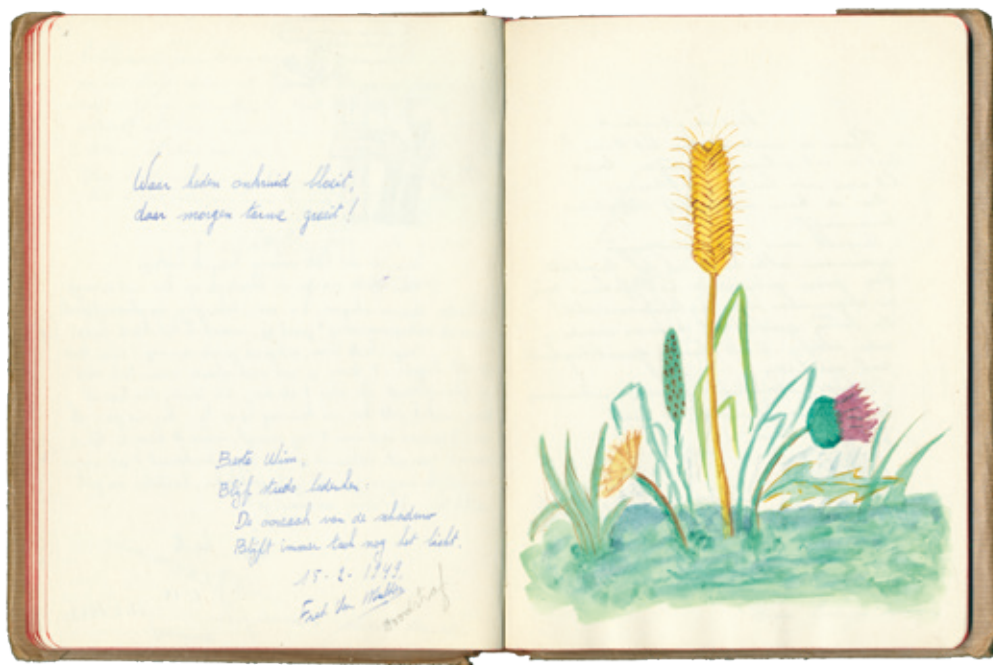 Waar heden onkruid bloeit,
daar morgen tarwe groeit!
Beste Wim,
Blijf steeds bedenken:
De oorzaak van de schaduw
Blijft immer toch nog het licht.
15-2-1949.
Fred Van
doodstraf